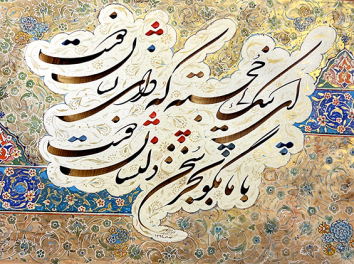 ای پیک پی خجسته که داری نشان دوست
با ما مگو بجز سخن دلنشان دوست